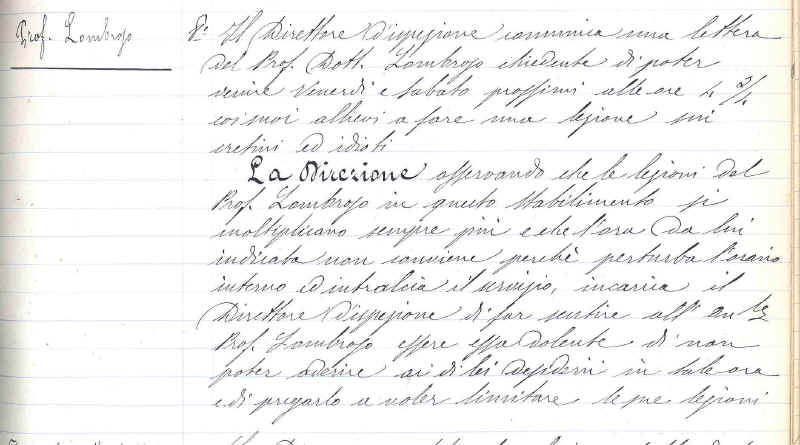 Prof. Lombroso
8º Il Direttore d'ispezione comunica una lettera
del Prof. Dott. Lombroso chiedente di poter
venire Venerdì e Sabato prossimi alle ore 4 3/4
coi suoi allievi a fare una lezione sui
cretini ed idioti
La Direzione osservando che le lezioni del
Prof. Lombroso in questo stabilimento si
moltiplicano sempre più e che l'ora da lui
indicata non conviene perchè perturba l'orario
interno ed intralcia il servizio, incarica il
Direttore d'ispezione di far sentire all'
Prof. Lombroso essere essa dolente di non
poter aderire ai di lei desideri in tale ora
e di pregarlo a voler limitare le sue lezioni